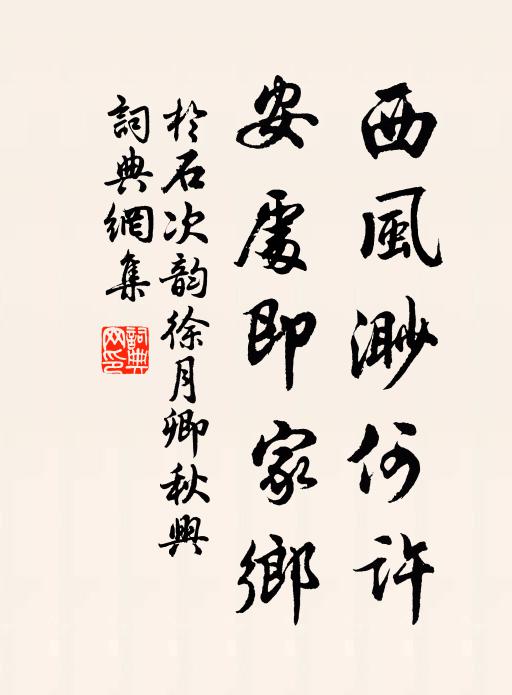 西風渺何許
安處即家鄉
於石次韵徐月卿秋興
詞典網集
詞典
网印